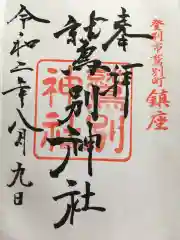 登別市鷲別町
鎮座
奉拝
鷲別神社
鷲別
神社
令和二年八月九日